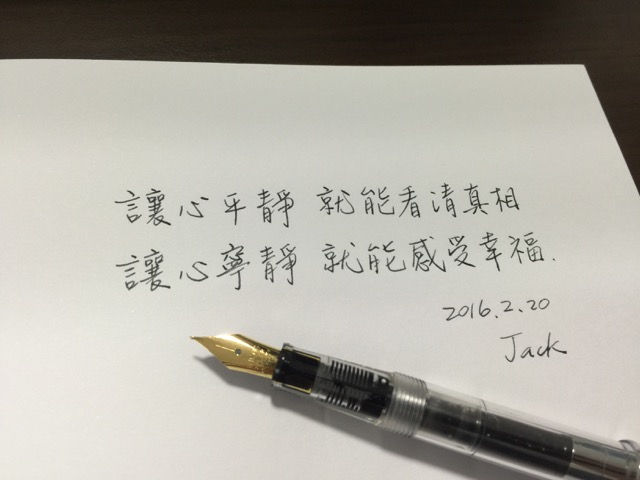 讓心平靜 就能看清真相
讓心寧靜 就能感受幸福.
2016.2.20
Jack